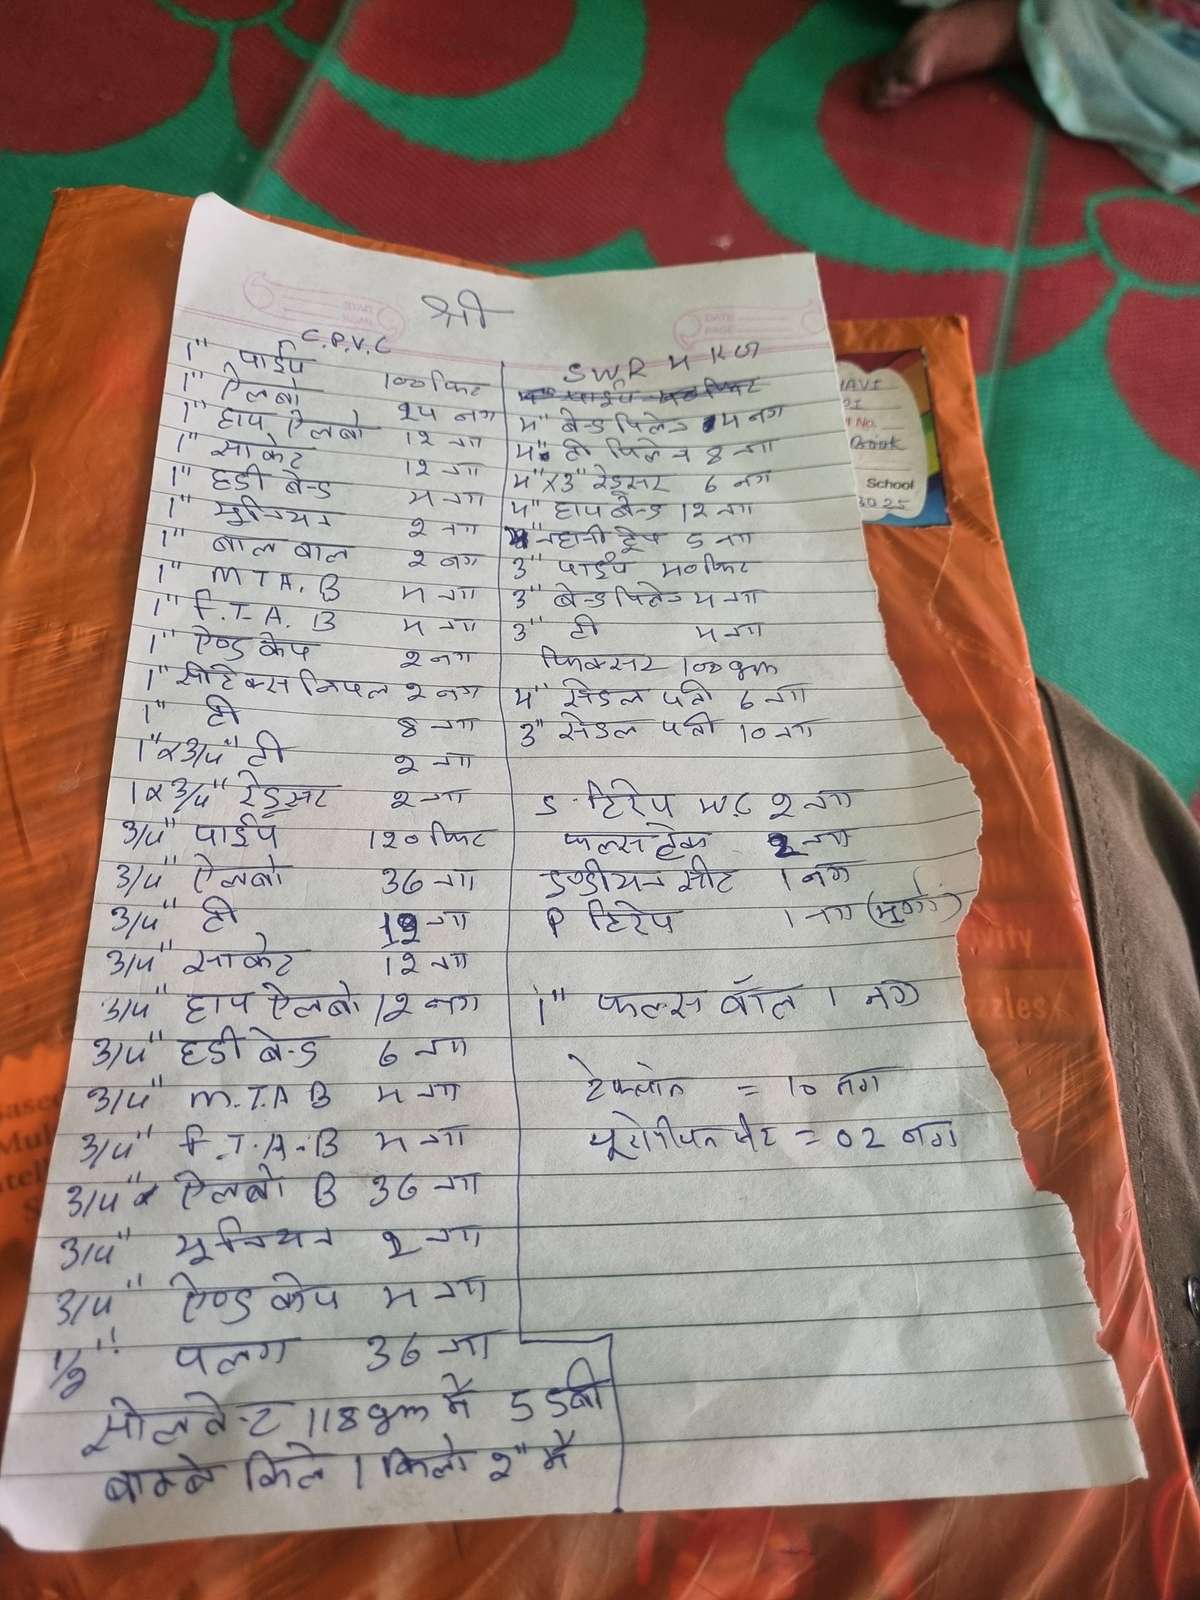 श्री
C.P.V.C
1" पाईप 100 फिट
1" ऐलबो 24 नग
1" हाप ऐलबो 12 नग
1" साकेट 12 नग
1" हडी बेन्ड 4 नग
1" यूनियन 2 नग
1" बाल बाल 2 नग
1" M T A. B 4 नग
1" F. T. A. B 4 नग
1" ऐण्ड केप 2 नग
1" सीटेक्स निपल 2 नग
1" टी 8 नग
1" x 3/4" टी 2 नग
1 x 3/4" रेडूसर 2 नग
3/4" पाईप 120 फिट
3/4" ऐलबो 36 नग
3/4" टी 12 नग
3/4" साकेट 12 नग
3/4" हाप ऐलबो 12 नग
3/4" हडी बेन्ड 6 नग
3/4" M.T.A B 4 नग
3/4" F.T.A.B 4 नग
3/4" x ऐलबो B 36 नग
3/4" यूनियन 2 नग
3/4" ऐण्ड केप 4 नग
1/2" पलग 36 नग
सोलवेन्ट 118 gm मै 5 डबी
बाम्बे किले 1 किलो 2" मै
SWR 4 KG
4" बेन्ड पिलेन 4 नग
4" टी पिलेन 8 नग
4" x 3" रेडूसर 6 नग
4" हाप बेन्ड 12 नग
4" नहानी ट्रेप 5 नग
3" पाईप 40 फिट
3" बेन्ड पिलेन 4 नग
3" टी 4 नग
फिक्सर 100 gm
4" सेडल पती 6 नग
3" सेडल पती 10 नग
S टिरेप W.C 2 नग
फल्स टेंक 2 नग
इण्डीयन सीट 1 नग
P टिरेप 1 नग
1" फल्स वॉल 1 नग
टेफ्लोन = 10 नग
यूरोपीयन सीट = 02 नग
School